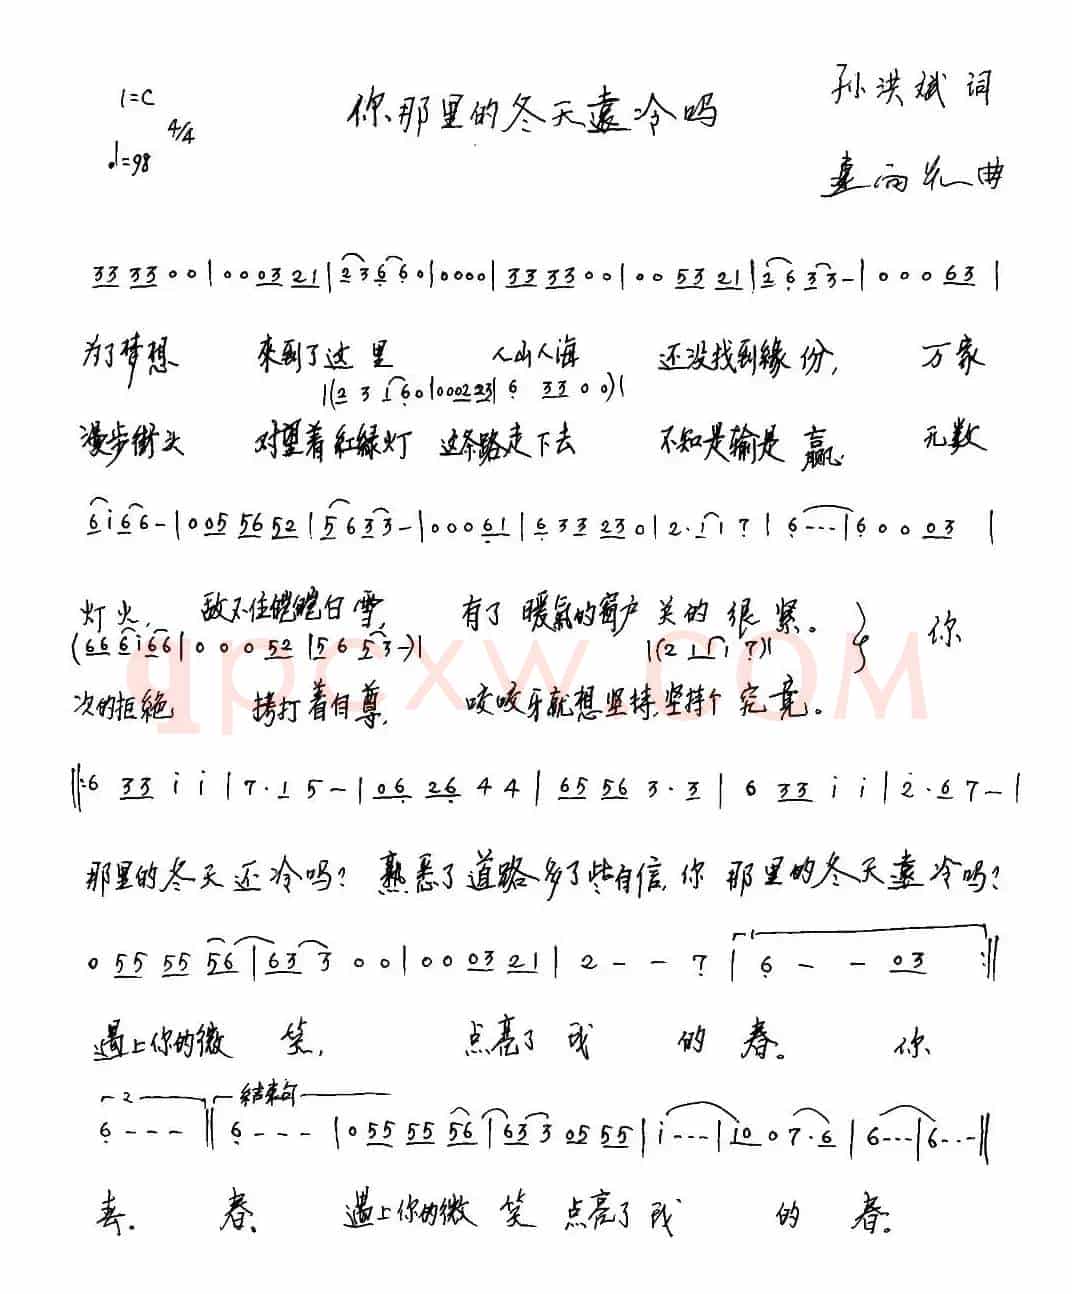 1=C 4/4
♩=98
你那里的冬天還冷吗
孙洪斌 词
曲
33 33 0 0 | 0 0 03 21 | 23 66 0 | 0000 | 33 33 0 0 | 0 0 53 21 | 26 33 - | 0 0 0 63 |
为了梦想 來到了这里 人山人海 还没找到緣份, 万家
|(23 160|0002 23|6 33 0 0)|
漫步街头 对望着红绿灯 这条路走下去 不知是输是赢. 无数
6i66 - | 005 56 52 | 5633 - | 00061 | 633 230 | 2·11 7 | 6--- | 60003 |
灯火, 敌不住皑皑白雪, 有了暖氣的窗户关的很紧。 你
(666i66 | 00052 | 5653-)| |(2111 7)|
次的拒絶 拷打着自尊, 咬咬牙就想坚持,坚持个究竟。
||:6 33 i i | 7·1 5 - | 06 26 4 4 | 65 56 3·3 | 6 33 i i | 2·6 7 - |
那里的冬天还冷吗? 熟悉了道路多了些自信,你那里的冬天還冷吗?
0 55 55 56 | 633 0 0 | 0 0 03 21 | 2 - - 7 | 1 6 - - 03 :||
遇上你的微笑, 点亮了我的春。 你
2 结束句
6 --- || 6 --- | 0 55 55 56 | 633 05 55 | i --- | i0 0 7·6 | 6--- | 6--- ||
春. 春. 遇上你的微笑 点亮了我的春。
qpcxw.COM